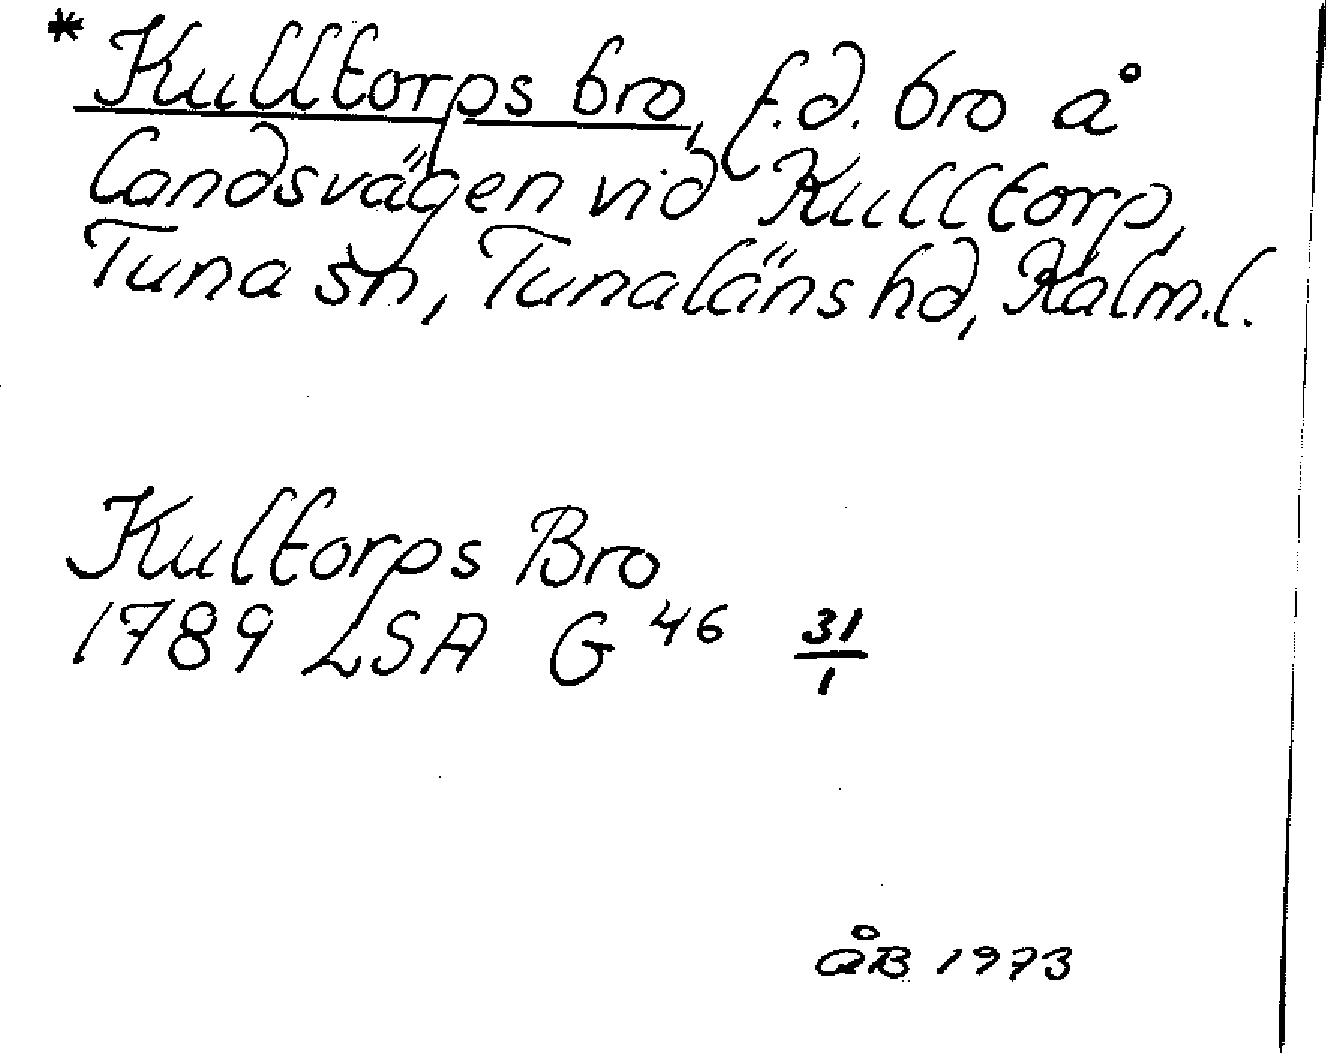 * Kulltorps bro, f.d. bro å
landsvägen vid Kulltorp,
Tuna sn, Tunaläns hd, Kalm.l.
Kultorps Bro
1789 LSA G 46 31/1
ÅB 1973